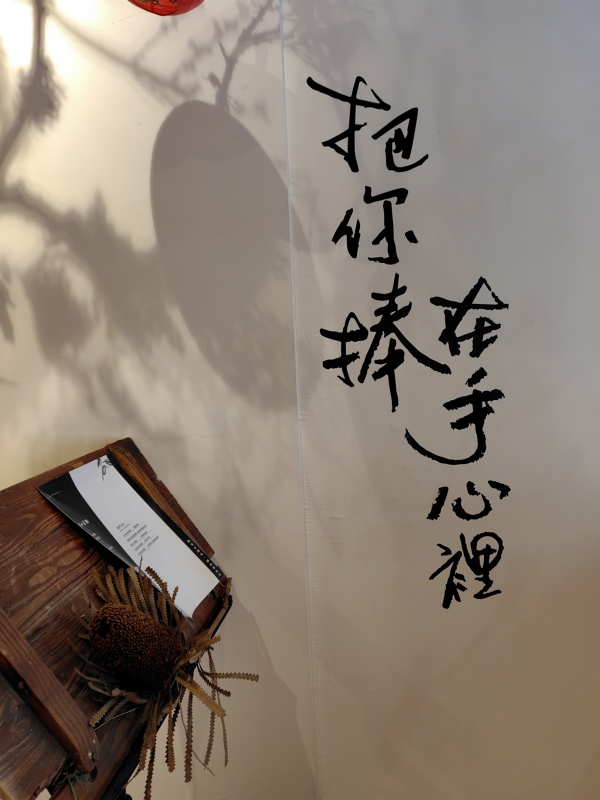 把你捧
在手心裡